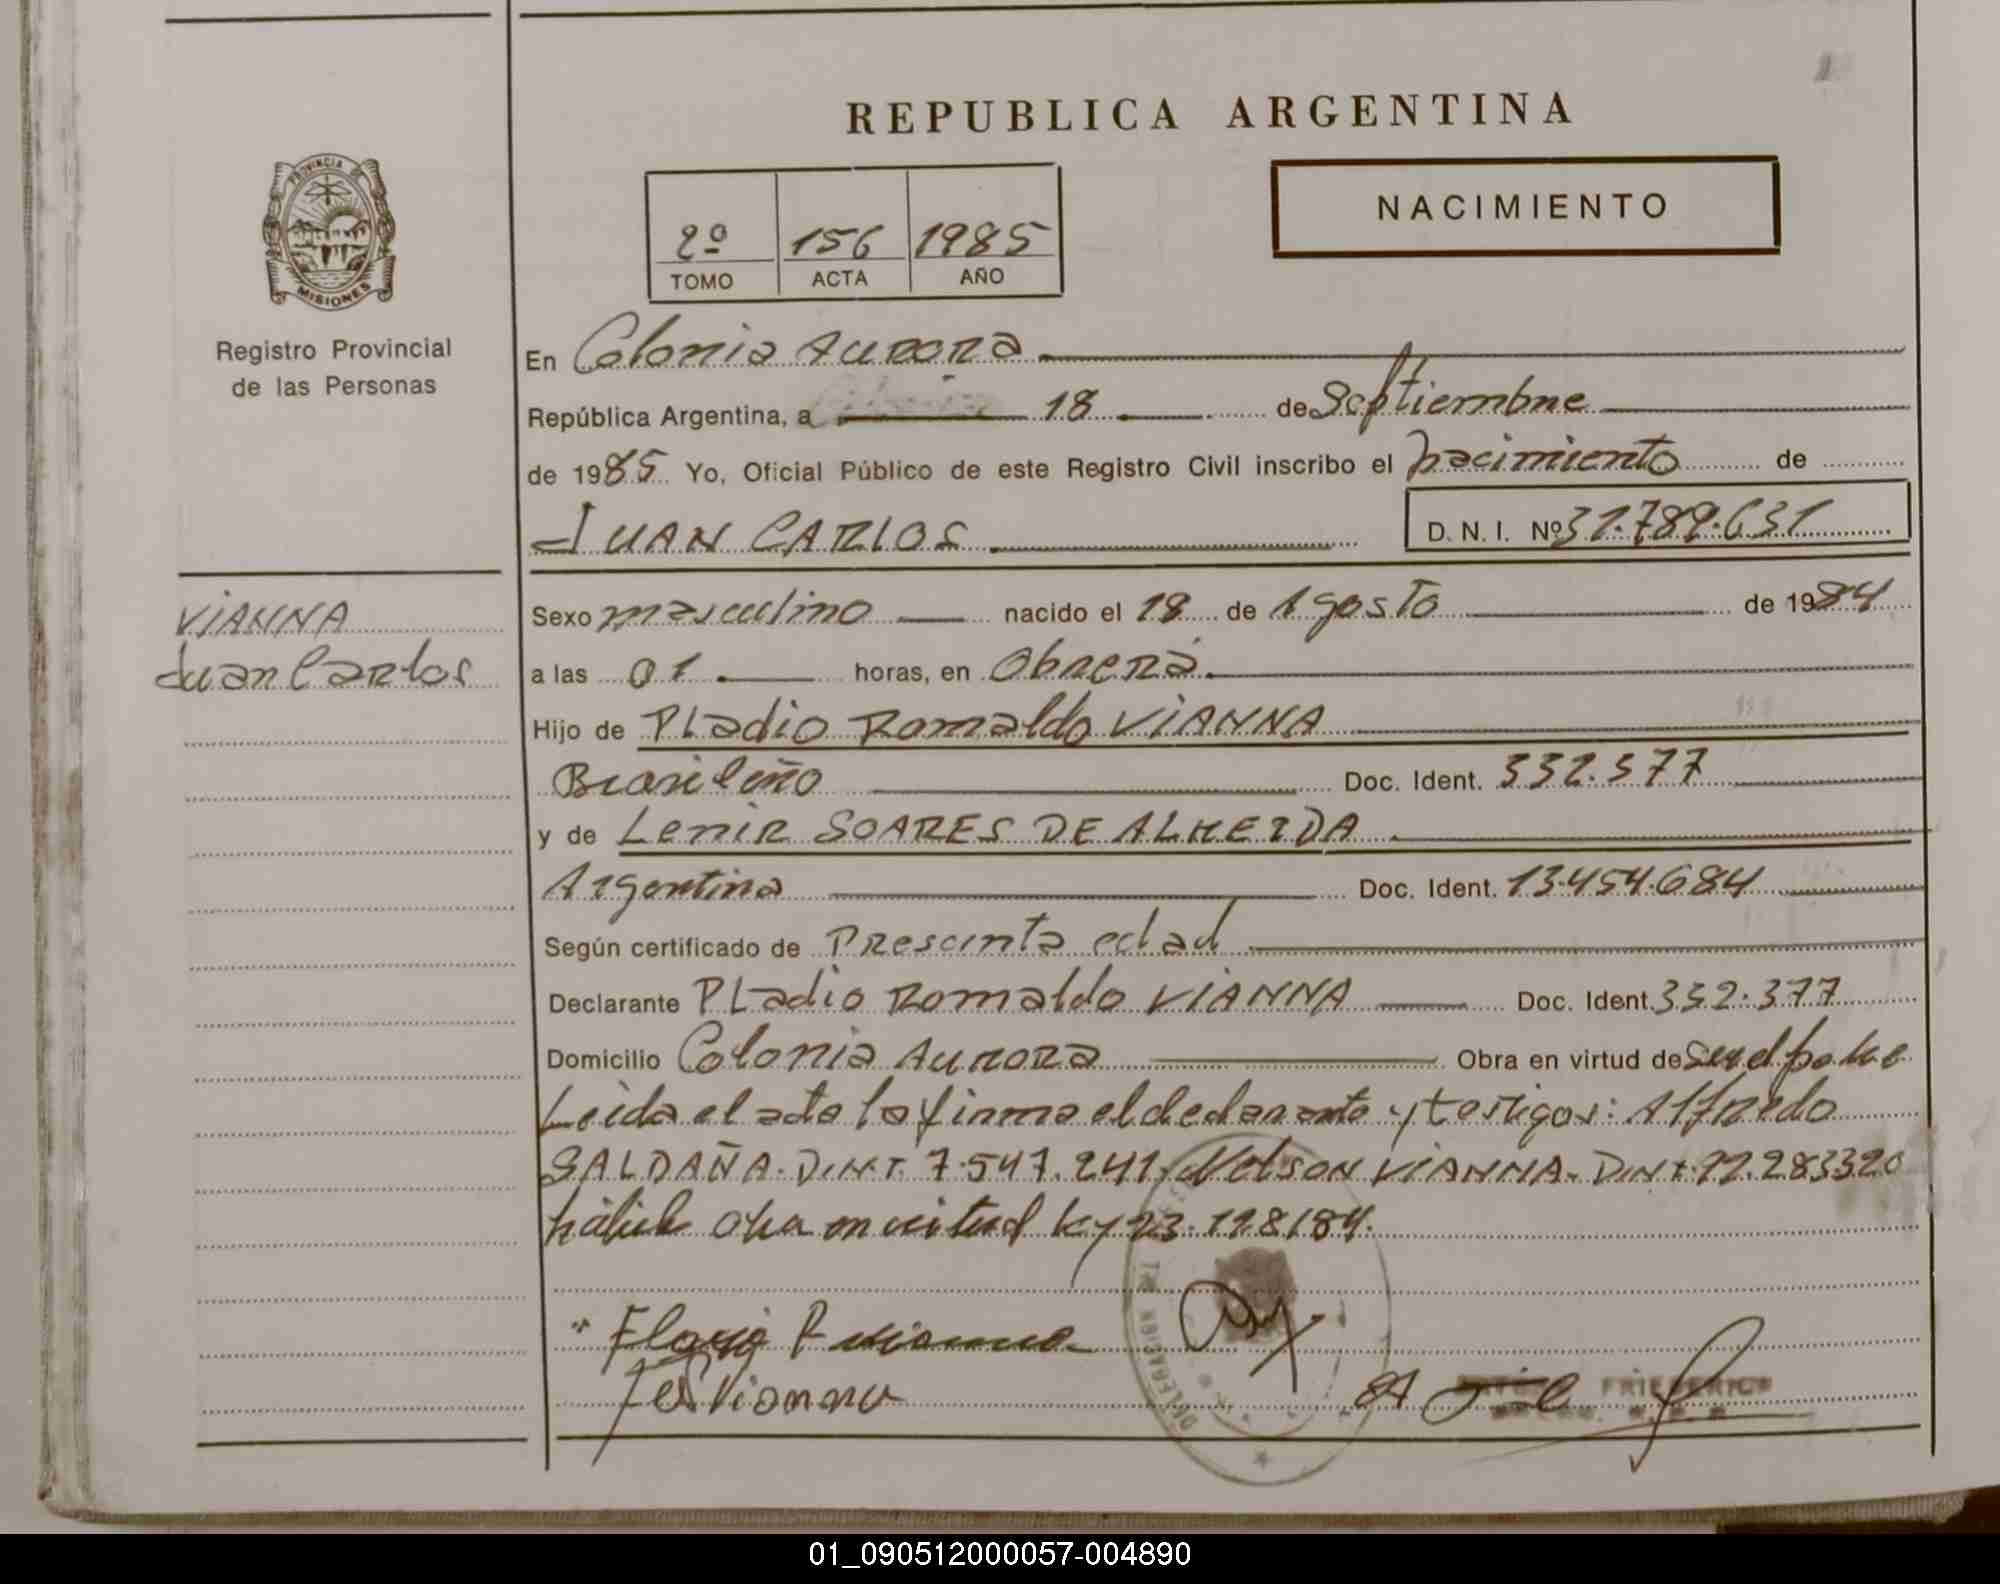 REPUBLICA ARGENTINA
NACIMIENTO
2º 156 1985
TOMO ACTA AÑO
PROVINCIA DE
MISIONES
Registro Provincial
de las Personas
En Colonia Aurora
República Argentina, a 18 de Septiembre
de 1985 Yo, Oficial Público de este Registro Civil inscribo el nacimiento de
JUAN CARLOS D. N. I. Nº 31.789.631
VIANNA
Juan Carlos
Sexo masculino nacido el 18 de Agosto de 1984
a las 01 horas, en Obrera
Hijo de Pladio Romaldo VIANNA
Brasileño Doc. Ident. 332.377
y de Lenir SOARES DE ALMEIDA
Argentina Doc. Ident. 13.454.684
Según certificado de Presunta edad
Declarante Pladio Romaldo VIANNA Doc. Ident. 332.377
Domicilio Colonia Aurora Obra en virtud de
Leida el acta la firma el declarante y testigos: Alfredo
SALDAÑA. D.N.I. 7.547.241, Nelson VIANNA. DNI. 12.283320
Obra en virtud Ley 23.128/84.
DELEGACION
FRIEDERICH
01_090512000057-004890